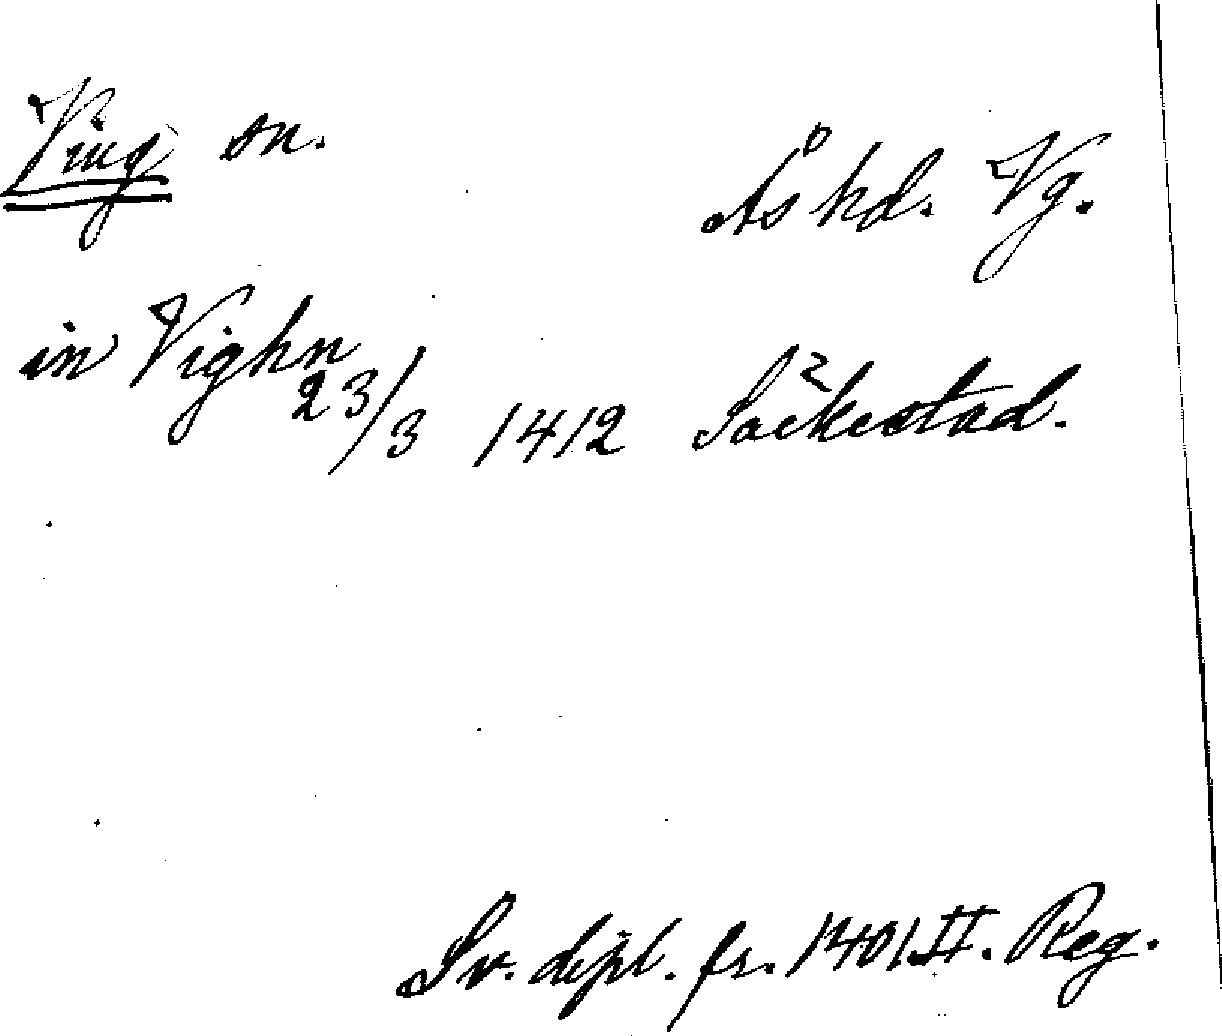 Ving sn.
Ås hd. Vg.
in Vighn
23/3 1412 Säckestad.
Sv. dipl. fr. 1401 II. Reg.